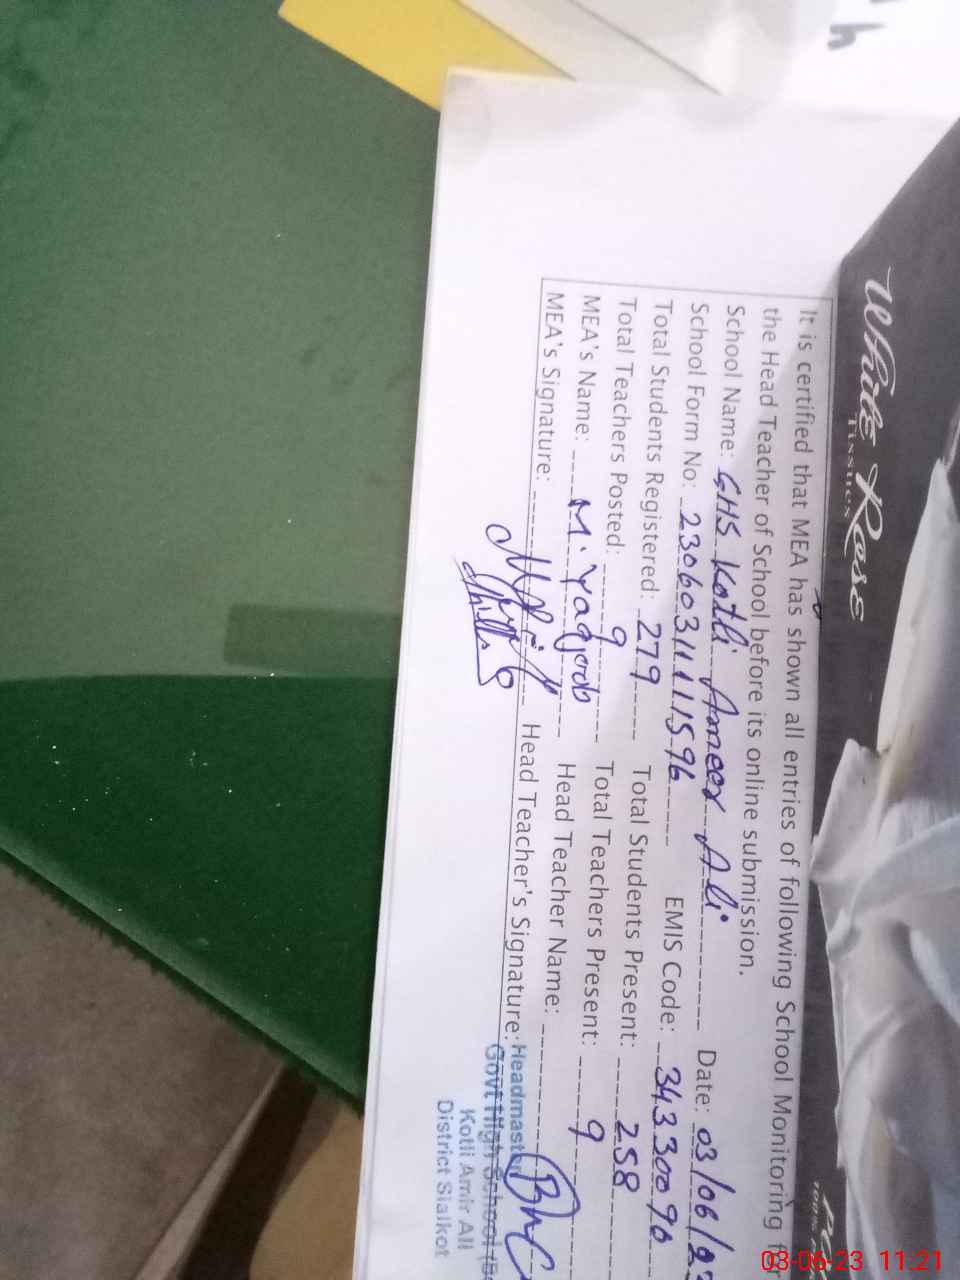 It is certified that MEA has shown all entries of following School Monitoring
the Head Teacher of School before its online submission.
School Name: GHS Kotli Ameer Ali Date: 03/06/
School Form No: 230603111111596 EMIS Code: 34330096
Total Students Registered: 279 Total Students Present: 258
Total Teachers Posted: 9 Total Teachers Present: 9
MEA's Name: M. Yaqoob Head Teacher Name:
MEA's Signature: Head Teacher's Signature:
Headmaster
Govt High School
Kotli Amir Ali
District Sialkot
White Rose
TISSUES
03-06-23 11:21